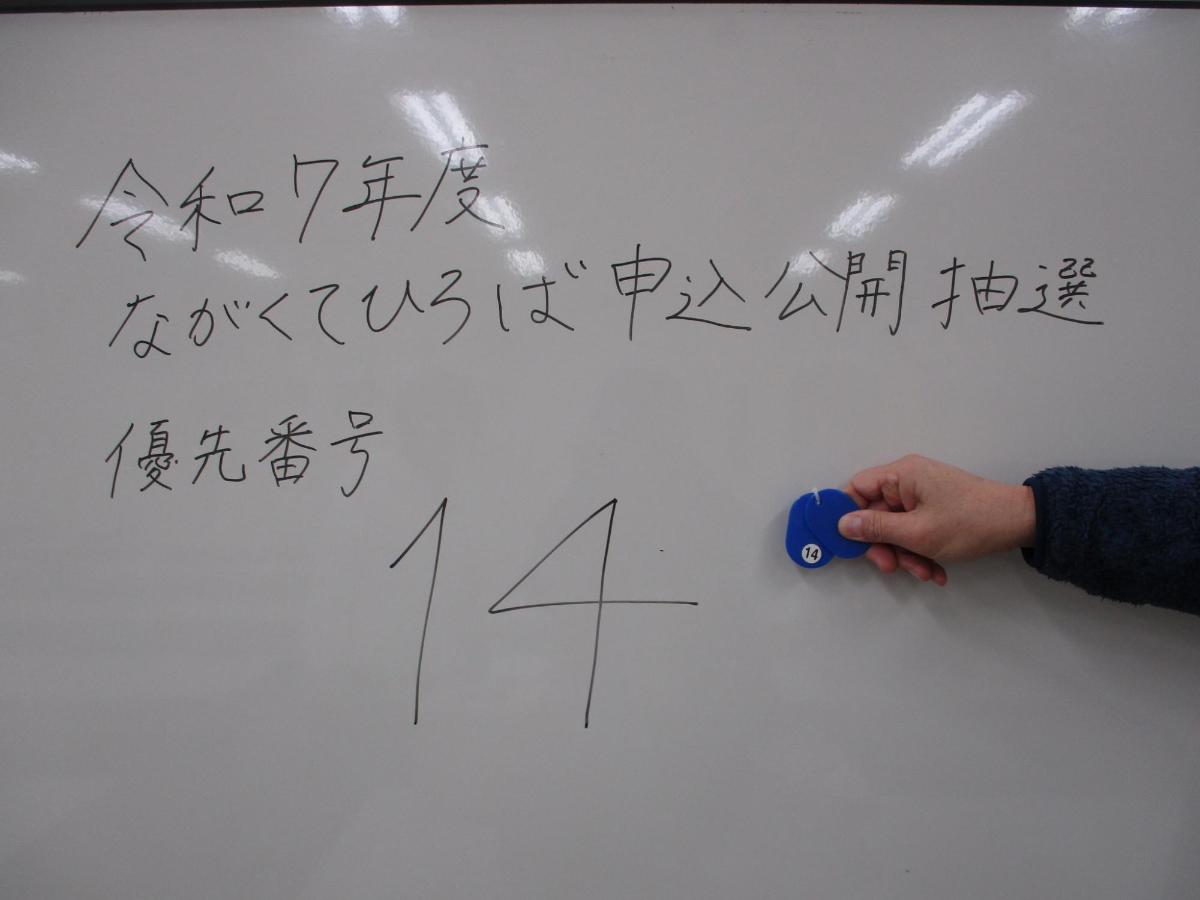 令和7年度
ながくてひろば申込公開抽選
優先番号
14
14